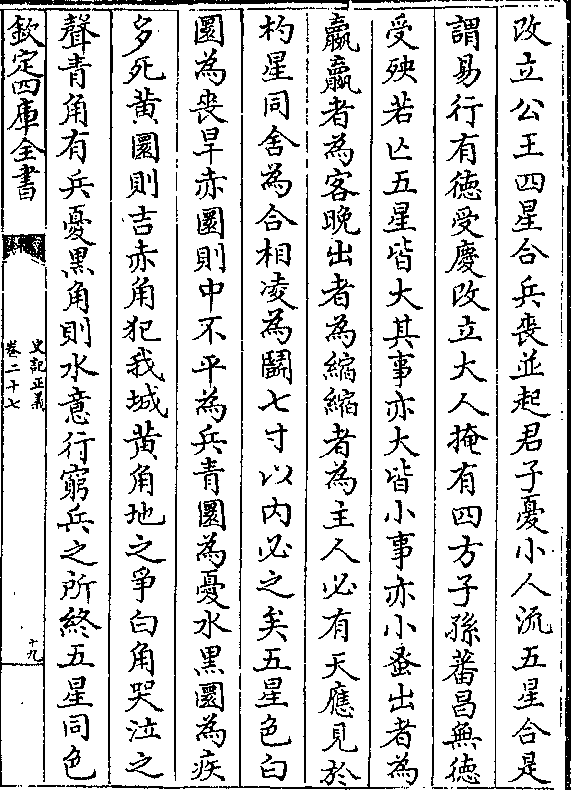 改立公王四星合兵喪並起君子憂小人流五星合是
謂易行有德受慶改立大人掩有四方子孫蕃昌無德
受殃若亡五星皆大其事亦大皆小事亦小蚤出者為
贏贏者為客晚出者為縮縮者為主人必有天應見於
杓星同舍為合相凌為鬭七寸以內必之矣五星色白
圜為喪旱赤圜則中不平為兵青圜為憂水黑圜為疾
多死黃圜則吉赤角犯我城黃角地之爭白角哭泣之
聲青角有兵憂黑角則水意行窮兵之所終五星同色
欽定四庫全書
史記正義
卷二十七
十九